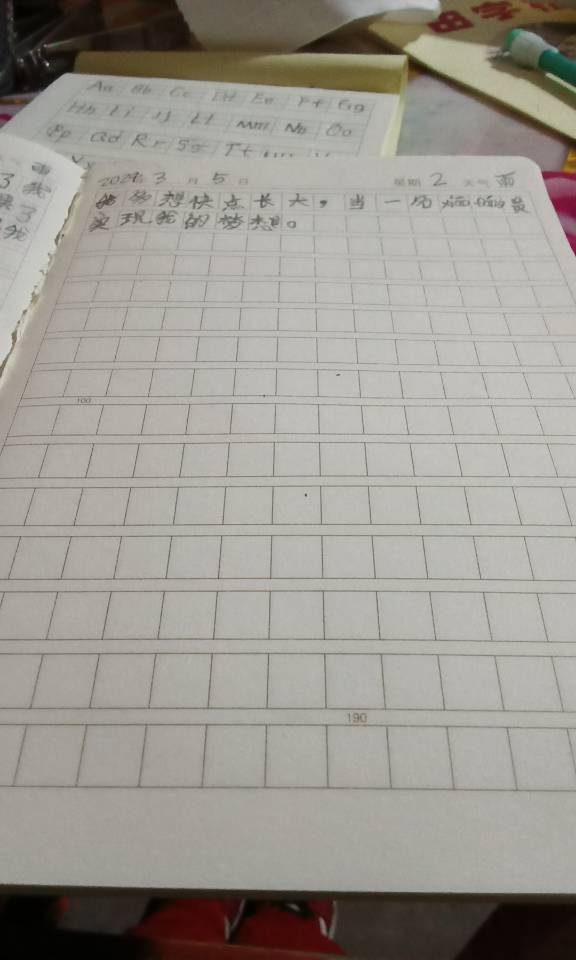 Aa Bb Cc Dd Ee Ff Gg
Hh Ii Jj Ll Mm Nn Oo
Pp Qq Rr Ss Tt
2024年3月5日 星期2 天气雨
我多想快点长大，当一名
实现我的梦想。
100
190